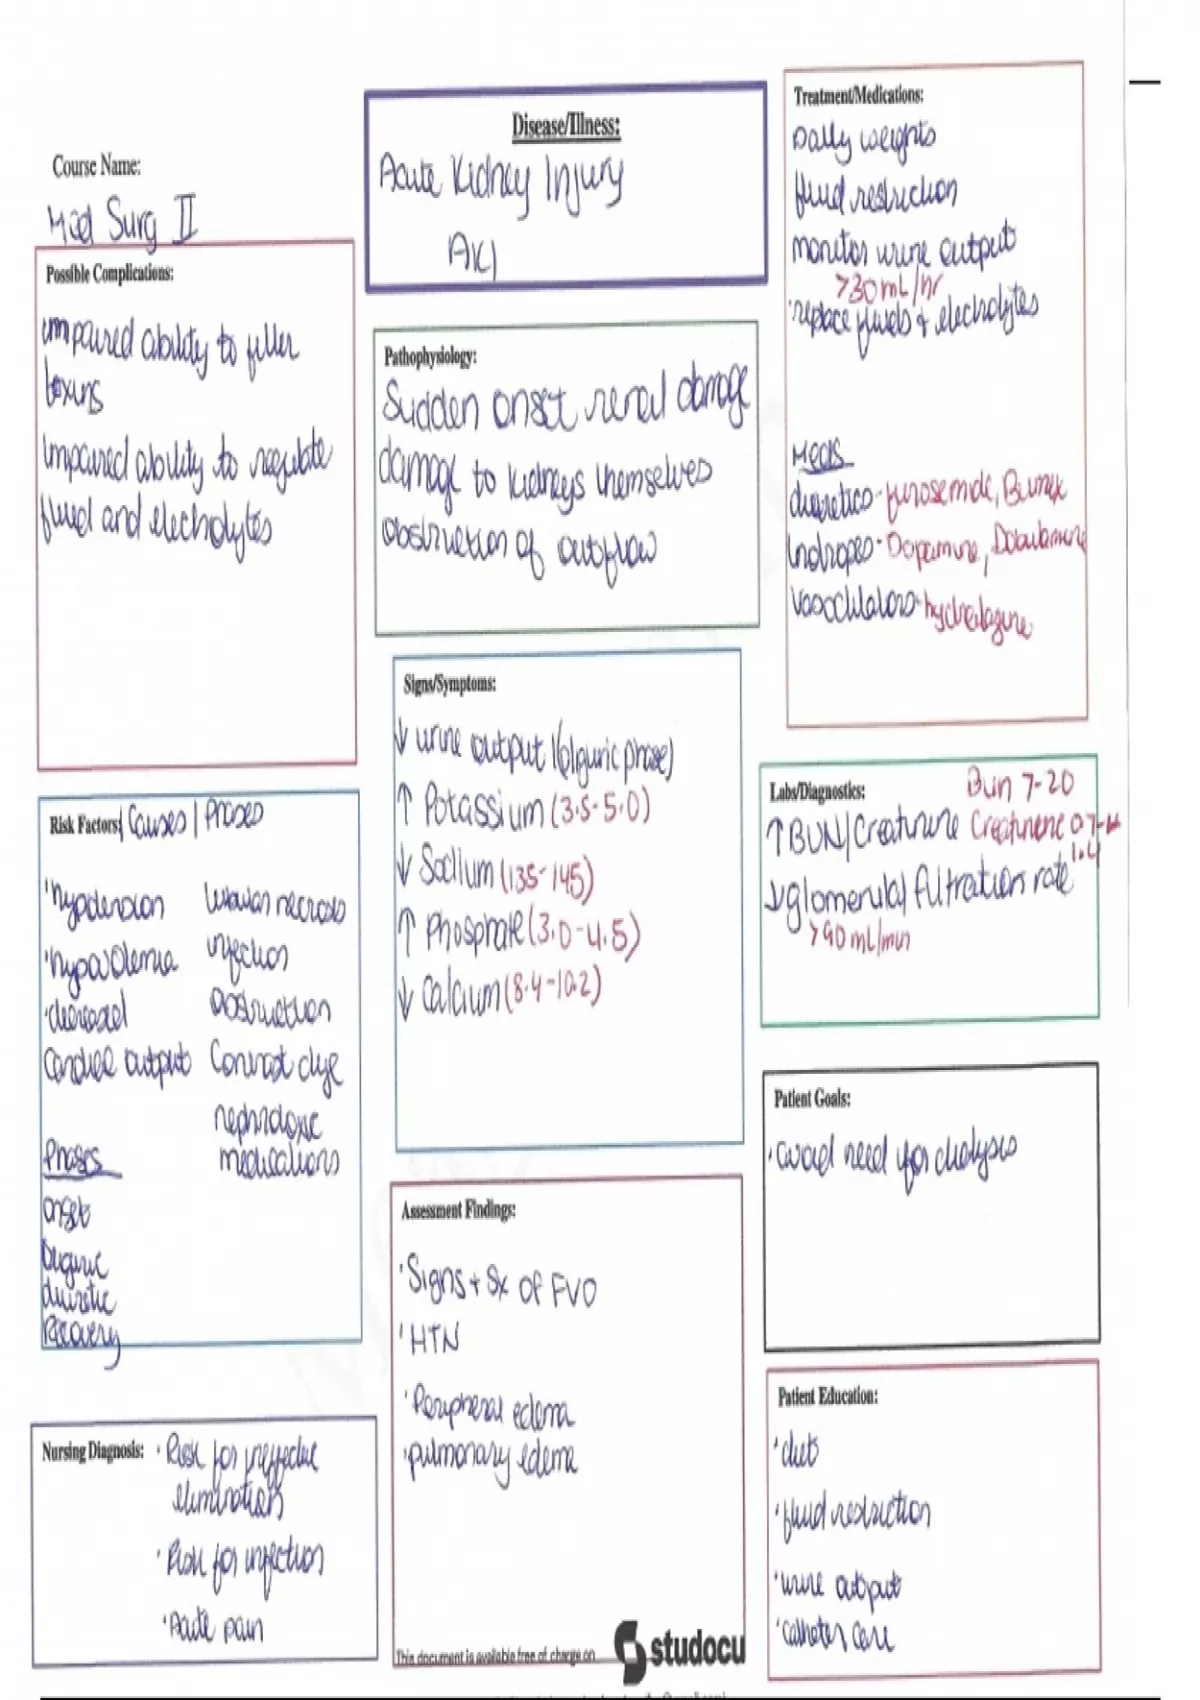 Course Name:
Med Surg II
Disease/Illness:
Acute Kidney Injury
AKI
Treatment/Medications:
Daily weights
fluid restriction
monitor urine output
>30 mL/hr
replace fluids + electrolytes
Meds
diuretics - furosemide, Bumex
Inotropes - Dopamine, Dobutamine
Vasodilators - hydralazine
Possible Complications:
impaired ability to filter
toxins
impaired ability to regulate
fluid and electrolytes
Pathophysiology:
Sudden onset renal damage
damage to kidneys themselves
obstruction of outflow
Signs/Symptoms:
↓ urine output (oliguric phase)
↑ Potassium (3.5-5.0)
↓ Sodium (135-145)
↑ Phosphate (3.0-4.5)
↓ Calcium (8.4-10.2)
Labs/Diagnostics:
Bun 7-20
↑ BUN/Creatinine Creatinine 0.7-
1.4
↓ glomerular filtration rate
>90 mL/min
Risk Factors/ Causes / Phases
hypotension
hypovolemia
decreased
Cardiac output
tubular necrosis
infection
obstruction
Contrast dye
nephrotoxic
medications
Phases
onset
oliguric
diuretic
recovery
Patient Goals:
avoid need for dialysis
Assessment Findings:
Signs + Sx of FVO
HTN
Peripheral edema
pulmonary edema
Patient Education:
diet
fluid restriction
urine output
catheter care
Nursing Diagnosis:
Risk for ineffective
elimination
Risk for infection
Acute pain
This document is available free of charge on
studocu